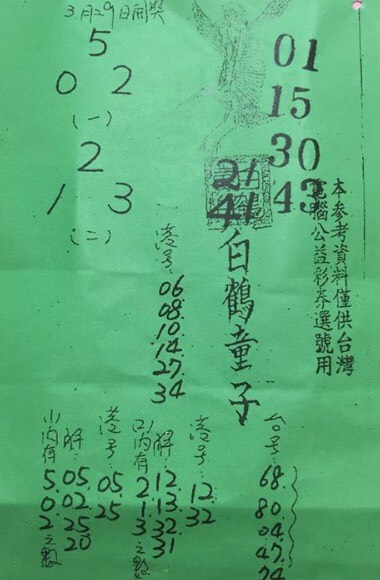 3月29日開獎
5
0 2
(一)
2
1 3
(二)
01
15
30
43
21
41
白鶴童子
本參考資料僅供台灣
電腦公益彩券選號用
港号:
06
08
10
14
27
34
台号:
68.
80
04
47
74
港号:
12
32
解:
12
13
32
31
(2)内有
2
1
3
之數
港号:
05
25
解:
05
02
25
20
(1)内有
5
0
2
之數